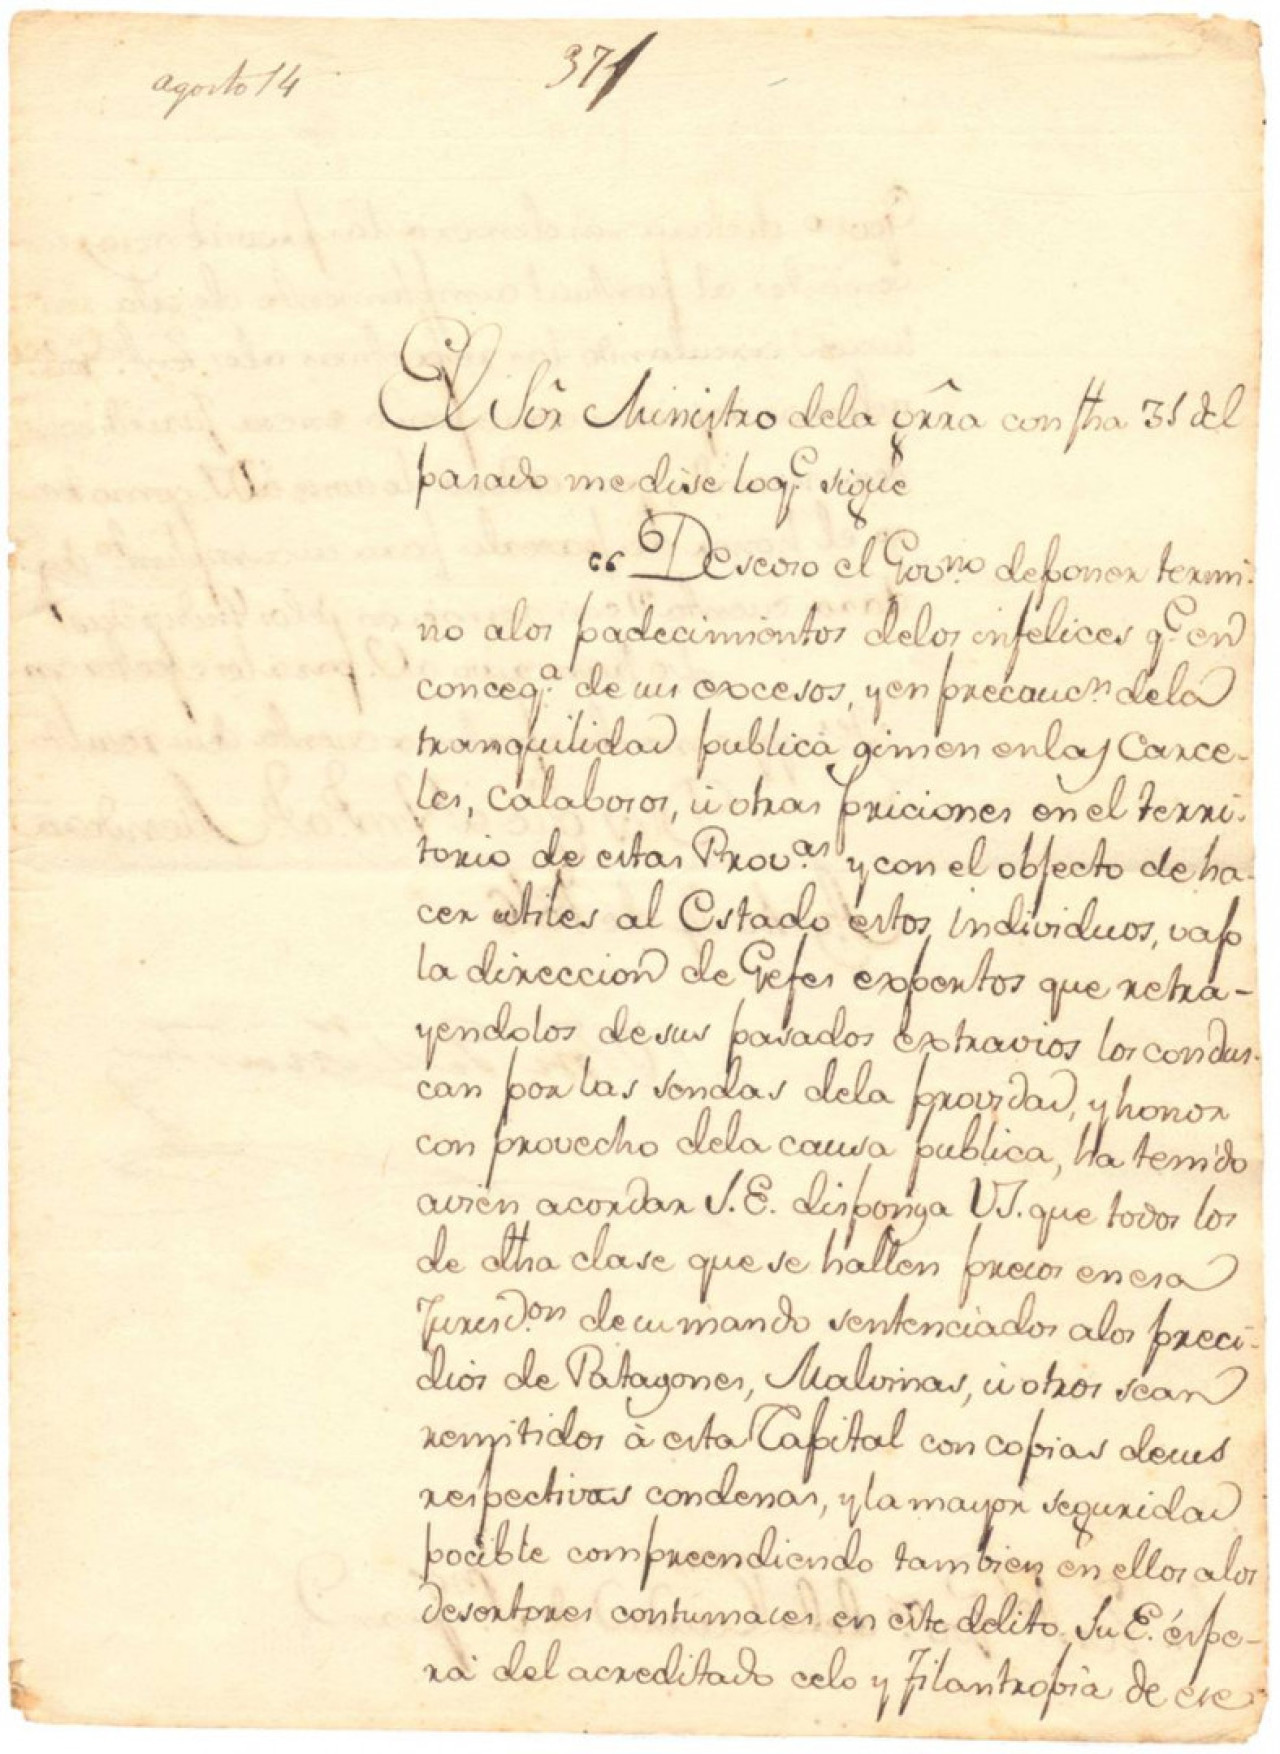 agosto 14
371
El Sôr Ministro dela grrâ con fha 31 del
pasado me dise loq.e sigue
"Deseoso el Gov.no de poner termi-
no alos padecimientos delos infelices q.e en
conceq.a de sus excesos, y en precauc.n dela
tranquilidad publica gimen en las Carce-
les, calabosos, ú otras priciones en el terri-
torio de estas Prov.as y con el objecto de ha-
cer utiles al Estado estos individuos, vajo
la direccion de Gefes expertos que retra-
yendolos de sus pasados extravios los condus-
can por las sendas dela providad, y honor
con provecho dela causa publica, ha tenido
avien acordar S.E. disponga VS. que todos los
de dha clase que se hallen presos en esa
Jurisd.on de su mando sentenciados alos preci-
dios de Patagones, Malvinas, ú otros sean
remitidos à esta Capital con copias desus
respectivas condenas, y la mayor seguridad
pocible compreendiendo tambien en ellos alos
desertores contumaces en este delito. Su E. espe-
ra del acreditado celo y Filantropia de ese